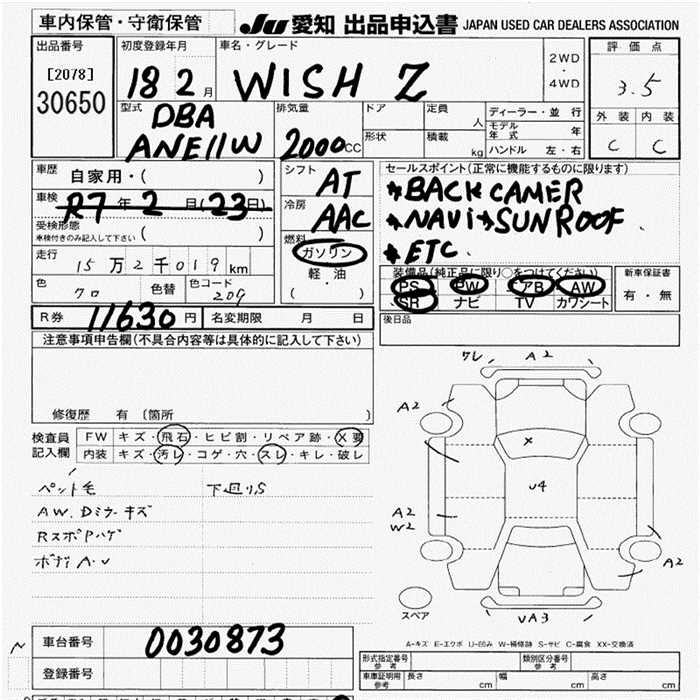 車内保管・守衛保管
JU 愛知 出品申込書 JAPAN USED CAR DEALERS ASSOCIATION
出品番号 初度登録年月 車名・グレード 評価点
[2078]
30650
18 2月 WISH Z
2WD
・
4WD
3.5
型式 排気量 ドア 定員 人 ディーラー・並行 外装 内装
DBA
ANE11W 2000cc
形状 積載 kg
モデル年式 年
ハンドル 左・右
C C
車歴 自家用・( )
シフト AT
セールスポイント(正常に機能するものに限ります)
*BACK CAMER
*NAVi *SUN ROOF
*ETC
車検 R7年2月(23日)
冷房 AAC
受検形態
車検付きのみ記入して下さい ( )
燃料 ガソリン
軽・油
( )
走行 15万2千019km
装備品(純正品に限り○をつけてください) 新車保証書
PS PW エアB AW 有・無
SR ナビ TV カワシート
色 クロ 色替 色コード 209
R券 11630円 名変期限 月 日
後日品
注意事項申告欄(不具合内容等は具体的に記入して下さい)
修復歴 有〔箇所 〕
検査員
記入欄
FW キズ・飛石・ヒビ割・リペア跡・X要
内装 キズ・汚レ・コゲ・穴・スレ・キレ・破レ
ペット毛 下廻りS
AW.Dミラーキズ
RスポPハゲ
ボディA・U
ワレ A2
A2
X
U4
A2
W2
A2
UA3
スペア
A-キズ E-エクボ U-凹み W-補修跡 S-サビ C-腐食 XX-交換済
車台番号 0030873
登録番号
形式指定番号
参考
類別区分番号
参考
車庫証明用
参考
長さ cm 幅 cm 高さ cm